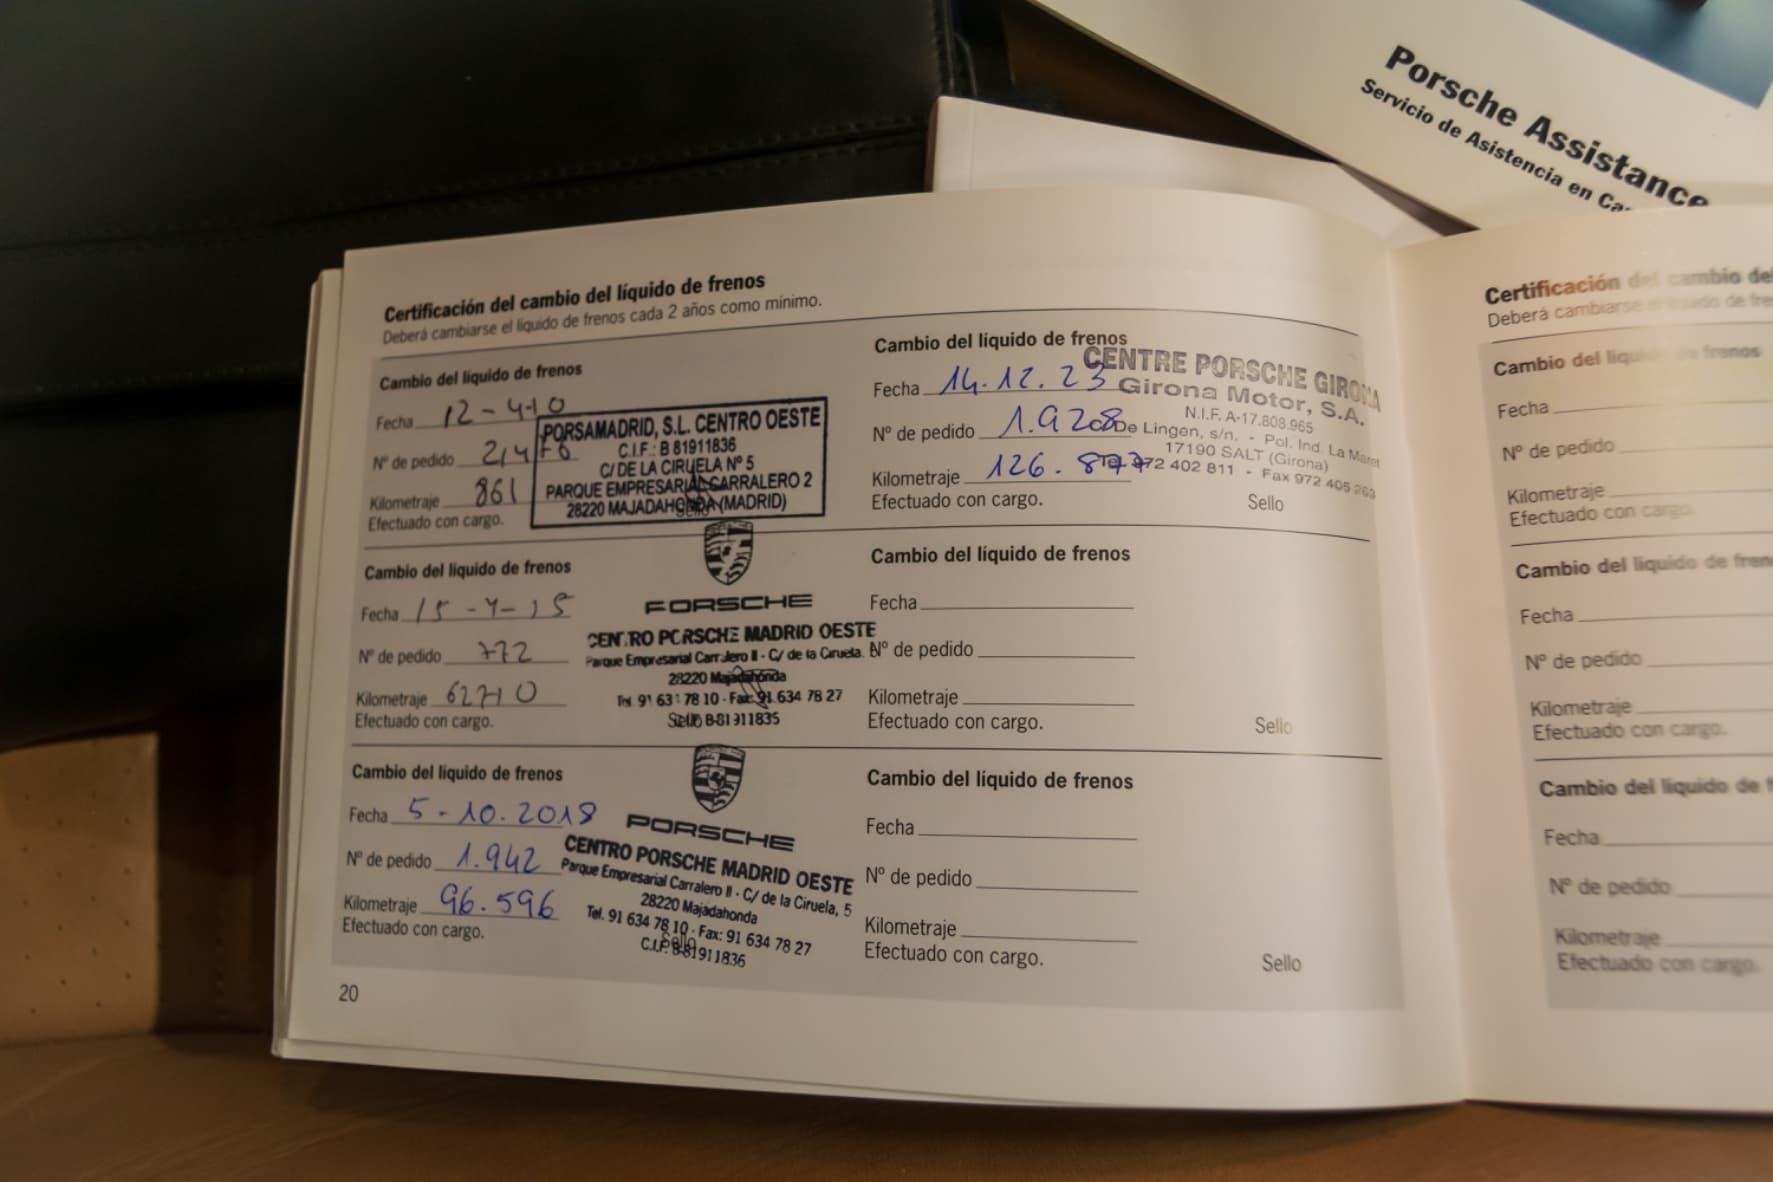 Porsche Assistance
Servicio de Asistencia en
Certificación del cambio del líquido de frenos
Deberá cambiarse el líquido de frenos cada 2 años como mínimo.
Cambio del líquido de frenos
Fecha 12-4-10
Nº de pedido
Kilometraje 861
Efectuado con cargo.
PORSAMADRID, S.L. CENTRO OESTE
C.I.F.: B 81911836
C/ DE LA CIRUELA Nº 5
PARQUE EMPRESARIAL CARRALERO 2
28220 MAJADAHONDA (MADRID)
Sello
Cambio del líquido de frenos
Fecha 15-4-15
Nº de pedido 772
Kilometraje 62710
Efectuado con cargo.
PORSCHE
CENTRO PORSCHE MADRID OESTE
Parque Empresarial Carralero II - C/ de la Ciruela,
28220 Majadahonda
Fax: 91 634 78 27
Sello
Cambio del líquido de frenos
Fecha 5-10.2018
Nº de pedido 1.942
Kilometraje 96.596
Efectuado con cargo.
PORSCHE
CENTRO PORSCHE MADRID OESTE
Parque Empresarial Carralero II - C/ de la Ciruela, 5
28220 Majadahonda
Tel. 91 634 78 10 - Fax: 91 634 78 27
Sello
C.I.F. B-81911836
20
Cambio del líquido de frenos
Fecha 14.12.23
Nº de pedido 1.928
Kilometraje 126.877
Efectuado con cargo.
CENTRE PORSCHE GIRONA
Girona Motor, S.A.
N.I.F. A-17.808.965
C/ De Lingen, s/n. - Pol. Ind. La Maret
17190 SALT (Girona)
Tel. 972 402 811 - Fax 972 405 263
Sello
Cambio del líquido de frenos
Fecha
Nº de pedido
Kilometraje
Efectuado con cargo.
Sello
Cambio del líquido de frenos
Fecha
Nº de pedido
Kilometraje
Efectuado con cargo.
Sello
Certificación del cambio del
Deberá cambiarse el líquido de
Cambio del líquido de frenos
Fecha
Nº de pedido
Kilometraje
Efectuado con cargo.
Cambio del líquido de
Fecha
Nº de pedido
Kilometraje
Efectuado con cargo.
Cambio del líquido de
Fecha
Nº de pedido
Kilometraje
Efectuado con cargo.